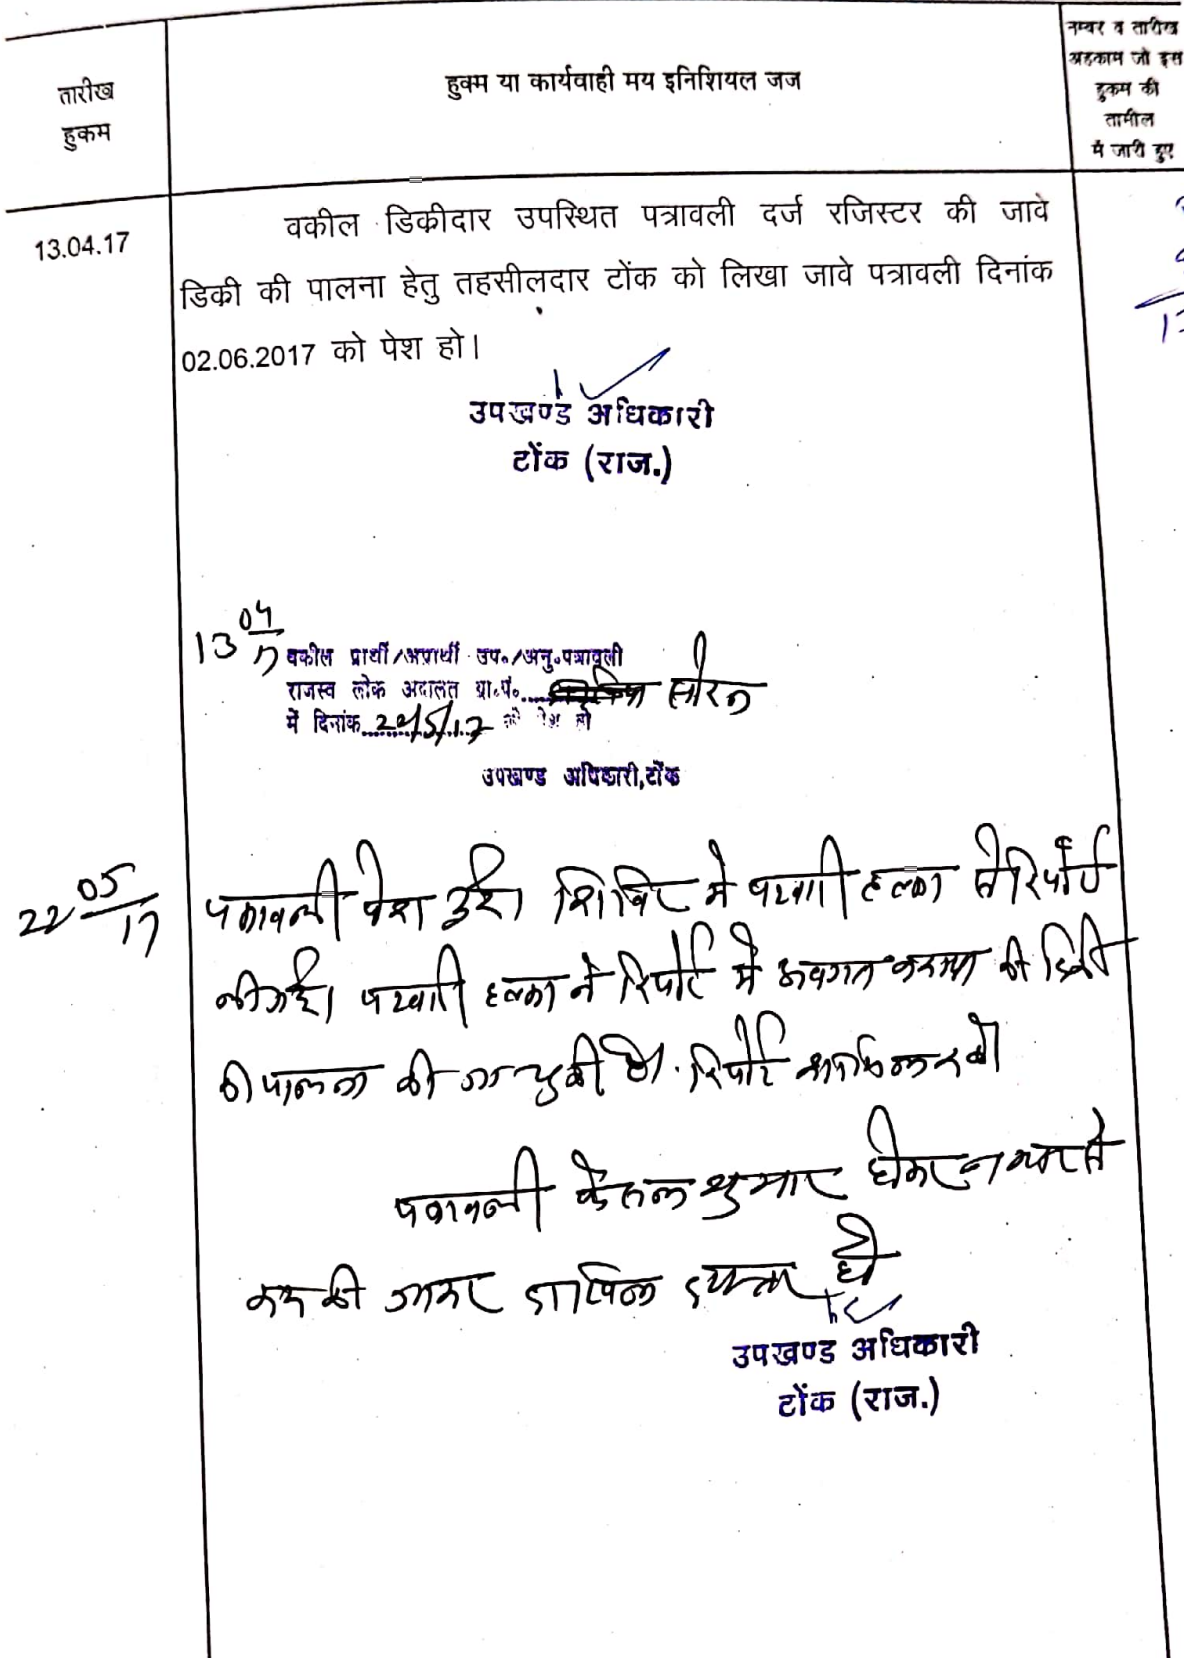 तारीख
हुकम
हुक्म या कार्यवाही मय इनिशियल जज
नम्बर व तारीख
अहकाम जो इस
हुकम की
तामील
में जारी हुए
13.04.17
वकील डिकीदार उपस्थित पत्रावली दर्ज रजिस्टर की जावे
डिकी की पालना हेतु तहसीलदार टोंक को लिखा जावे पत्रावली दिनांक
02.06.2017 को पेश हो।
उपखण्ड अधिकारी
टोंक (राज.)
13 04/17
वकील प्रार्थी/अप्रार्थी उप०/अनु०पत्रावली
राजस्व लोक अदालत ग्रा०पं०..... सोरन
में दिनांक 22/5/17 को पेश हो
उपखण्ड अधिकारी,टोंक
22 05/17
पत्रावली पेश हुई। शिविर में पटवारी हल्का से रिपोर्ट
ली गई। पटवारी हल्का ने रिपोर्ट में अवगत कराया की डिक्री
की पालना की जा चुकी है। रिपोर्ट शामिल रहे
पत्रावली फैसल शुमार होकर नम्बर से
कम की जाकर दाखिल दफ्तर हो
उपखण्ड अधिकारी
टोंक (राज.)